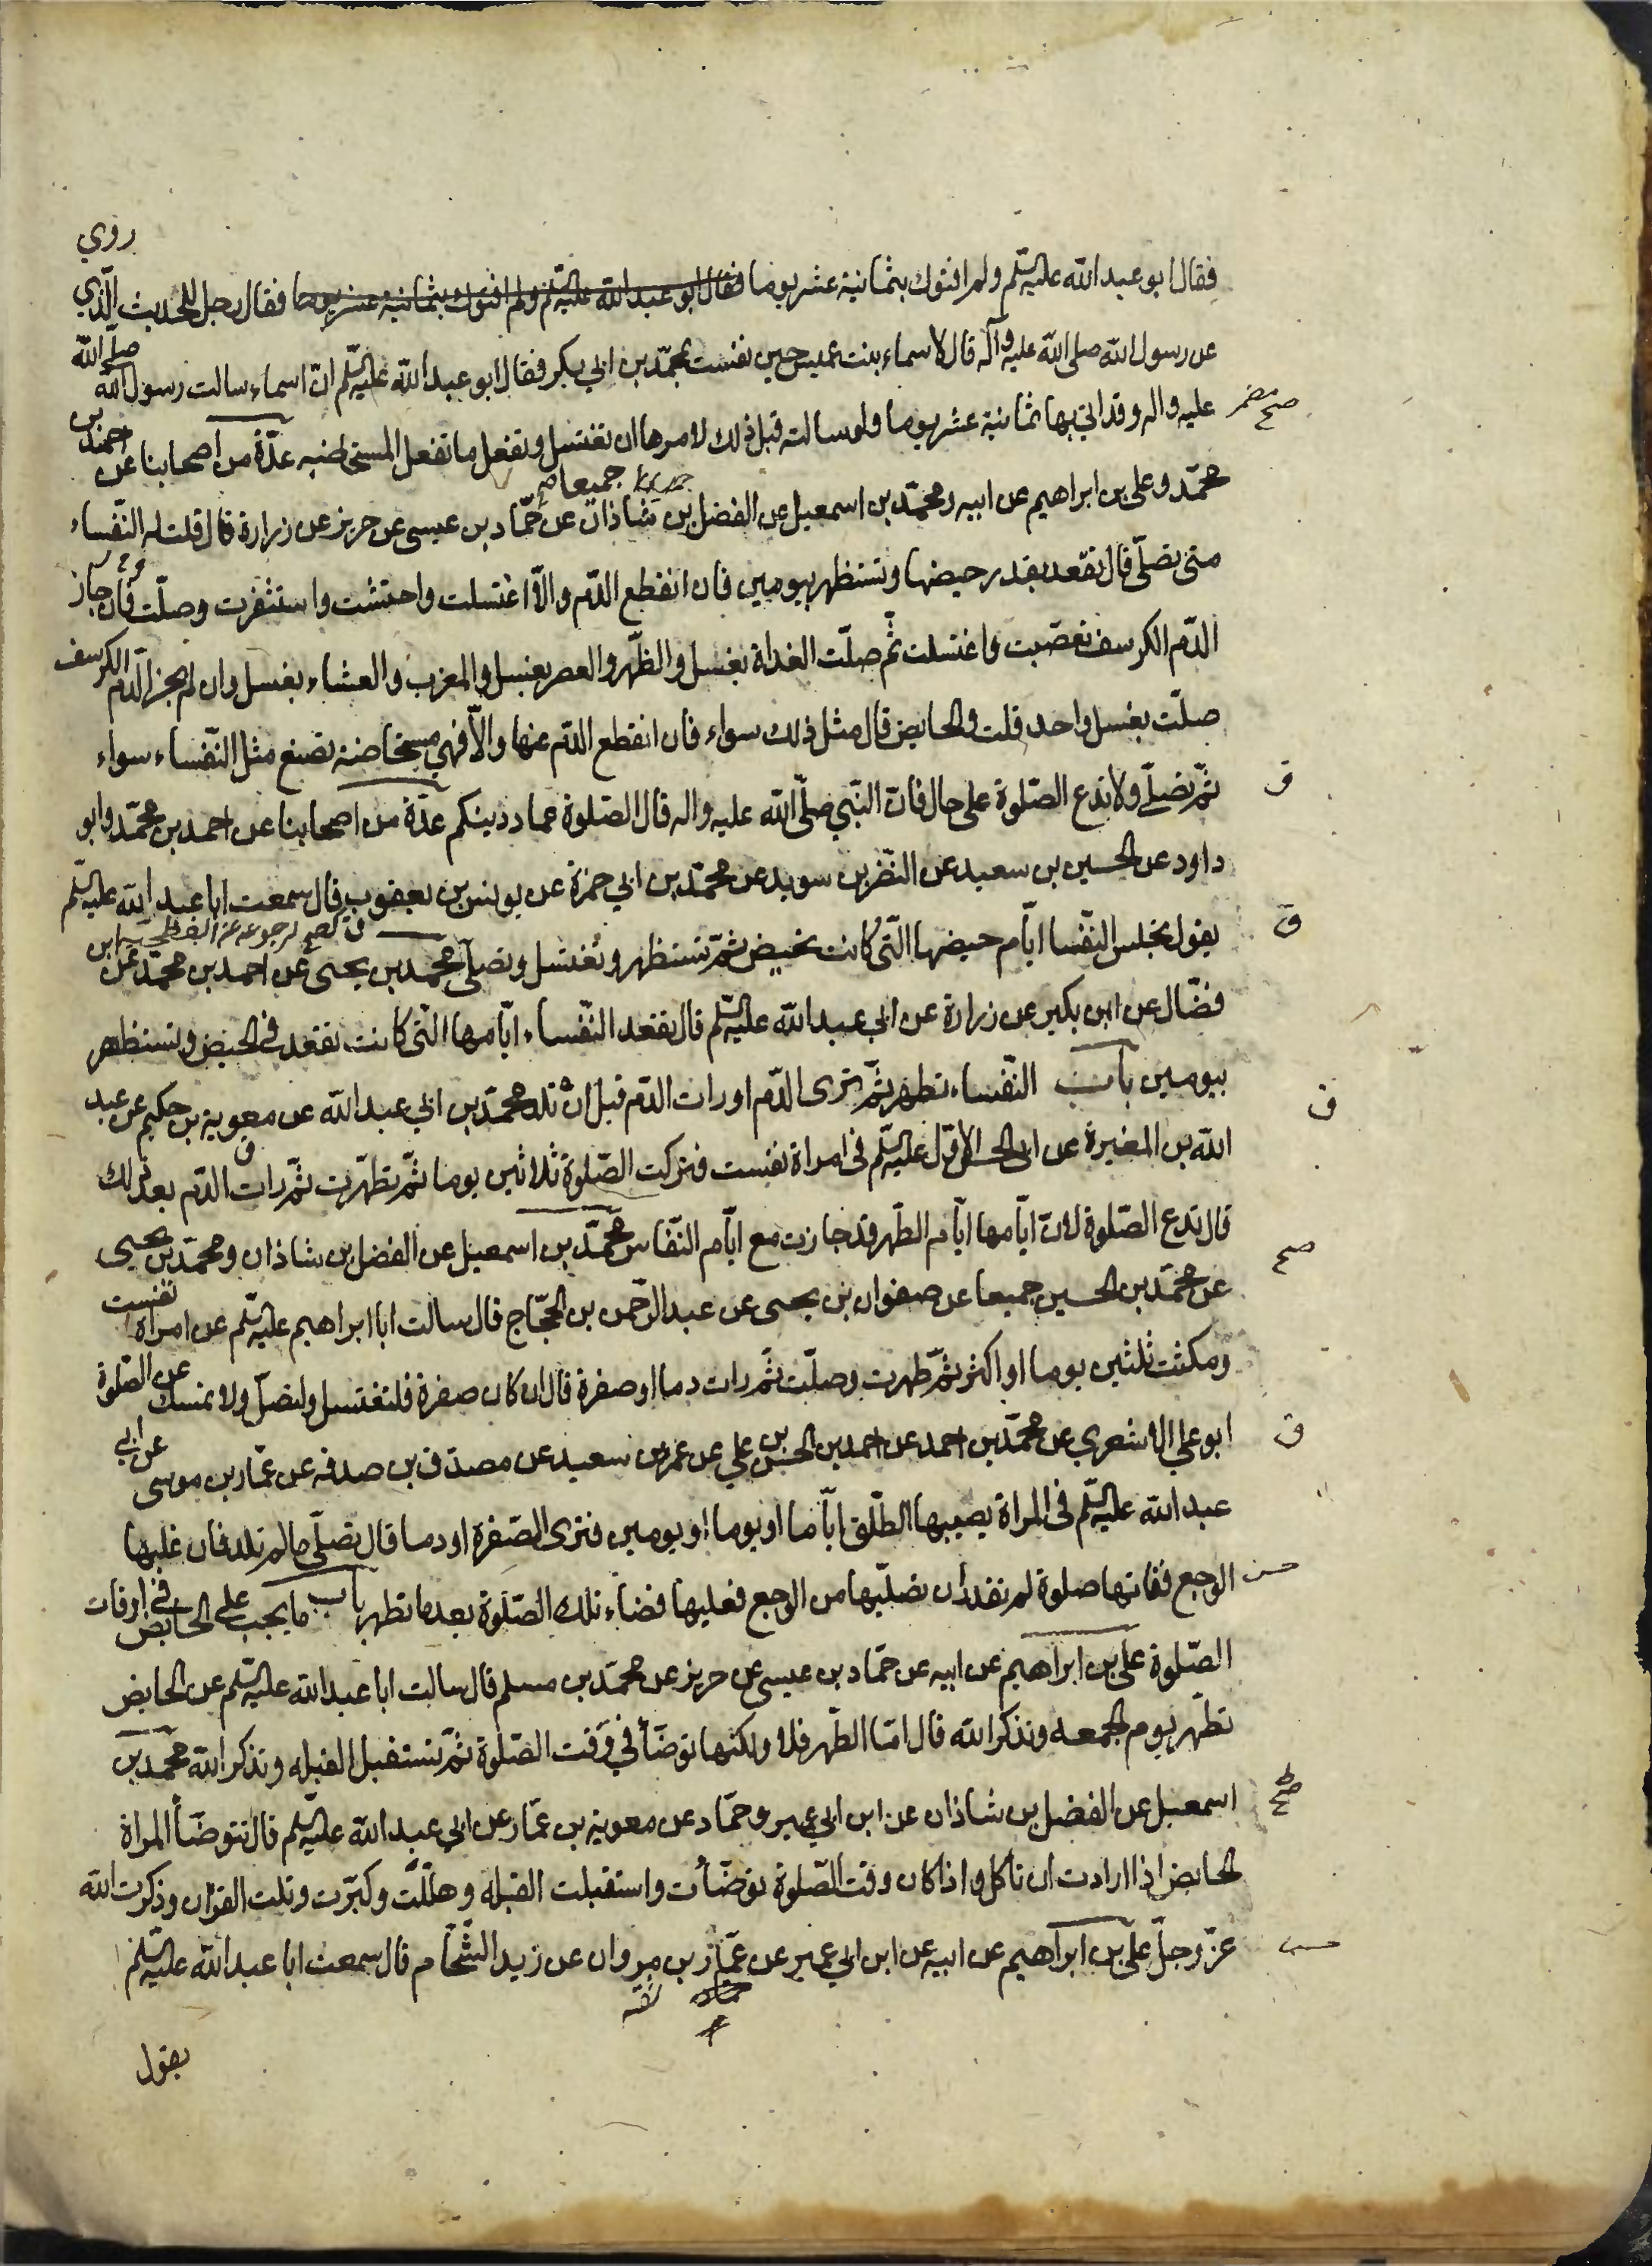 فقال ابو عبد الله عليه السلم ولم افتوك بثمانية عشر يوما فقال ابو عبد الله عليه السلم ولم افتوك بثمانية عشر يوما فقال رجل للحديث الّذي روي
عن رسول الله صلى الله عليه وآله قال لاسماء بنت عميس حين نفست بمحمّد بن ابي بكر فقال ابو عبد الله عليه السلم انّ اسماء سالت رسول الله صلّى الله
عليه واله وقد اتي بها ثمانية عشر يوما ولو سالته قبل ذلك لامرها ان تغتسل وتفعل ما تفعل المستحاضه عدّة من اصحابنا عن احمد بن
محمّد وعلي بن ابراهيم عن ابيه ومحمّد بن اسمعيل عن الفضل بن شاذان جميعا عن حمّاد بن عيسى عن حريز عن زرارة قال قلت له النّفساء
متى تصلّي قال تقعد بقدر حيضها وتستظهر بيومين فان انقطع الدّم والّا اغتسلت واحتشت واستثفرت وصلّت فان جاز
الدّم الكرسف تعصّبت واغتسلت ثمّ صلّت الغداة بغسل والظّهر والعصر بغسل والمغرب والعشاء بغسل وان لم يجز الدّم الكرسف
صلّت بغسل واحد قلت والحايض قال مثل ذلك سواء فان انقطع الدّم عنها والّا فهي مستحاضة تصنع مثل النّفساء سواء
ثمّ تصلّي ولا تدع الصّلوة على حال فانّ النّبي صلّى الله عليه واله قال الصّلوة عماد دينكم عدّة من اصحابنا عن احمد بن محمّد وابو
داود عن الحسين بن سعيد عن النّضر بن سويد عن محمّد بن ابي حمزة عن يونس بن يعقوب قال سمعت ابا عبد الله عليه السلم
يقول تجلس النّفسا ايّام حيضها الّتي كانت تحيض ثمّ تستظهر وتغتسل وتصلّي محمّد بن يحيى عن احمد بن محمّد عن ابن
فضّال عن ابن بكير عن زرارة عن ابي عبد الله عليه السلم قال تقعد النّفساء ايّامها الّتي كانت تقعد في الحيض وتستظهر
بيومين باب النّفساء تطهر ثمّ ترى الدّم او رات الدّم قبل ان تلد محمّد بن ابي عبد الله عن معوية بن حكيم عن عبد
الله بن المغيرة عن ابي الحسن الاوّل عليه السلم في امراة نفست فتركت الصّلوة ثلاثين يوما ثمّ تطهّرت ثمّ رات الدّم بعد ذلك
قال تدع الصّلوة لانّ ايّامها ايّام الطّهر قد جازت مع ايّام النّفاس محمّد بن اسمعيل عن الفضل بن شاذان ومحمّد بن يحيى
عن محمّد بن الحسين جميعا عن صفوان بن يحيى عن عبد الرّحمن بن الحجّاج قال سالت ابا ابراهيم عليه السلم عن امراة نفست
ومكثت ثلثين يوما او اكثر ثمّ طهرت وصلّت ثمّ رات دما او صفرة قال ان كان صفرة فلتغتسل ولتصلّ ولا تمسك عن الصّلوة
ابو علي الاشعري عن محمّد بن احمد عن احمد بن الحسن بن علي عن عمرو بن سعيد عن مصدّق بن صدقه عن عمّار بن موسى عن ابي
عبد الله عليه السلم في المراة يصيبها الطّلق ايّاما او يوما او يومين فترى الصّفرة او دما قال تصلّي ما لم تلد فان غلبها
الوجع ففاتها صلوة لم تقدر ان تصلّيها من الوجع فعليها قضاء تلك الصّلوة بعد ما تطهر باب ما يجب على الحايض في اوقات
الصّلوة علي بن ابراهيم عن ابيه عن حمّاد بن عيسى عن حريز عن محمّد بن مسلم قال سالت ابا عبد الله عليه السلم عن الحايض
تطّهر يوم الجمعه وتذكر الله قال امّا الطّهر فلا ولكنها توضّأ في وقت الصّلوة ثمّ تستقبل القبله وتذكر الله محمّد بن
اسمعيل عن الفضل بن شاذان عن ابن ابي عمير وحمّاد عن معوية بن عمّار عن ابي عبد الله عليه السلم قال تتوضّأ المراة
الحايض اذا ارادت ان تاكل واذا كان وقت الصّلوة توضّأت واستقبلت القبله وهلّلت وكبّرت وتلت القران وذكرت الله
عزّ وجلّ علي بن ابراهيم عن ابيه عن ابن ابي عمير عن عمّار بن مروان عن زيد الشّحّام قال سمعت ابا عبد الله عليه السلم
يقول